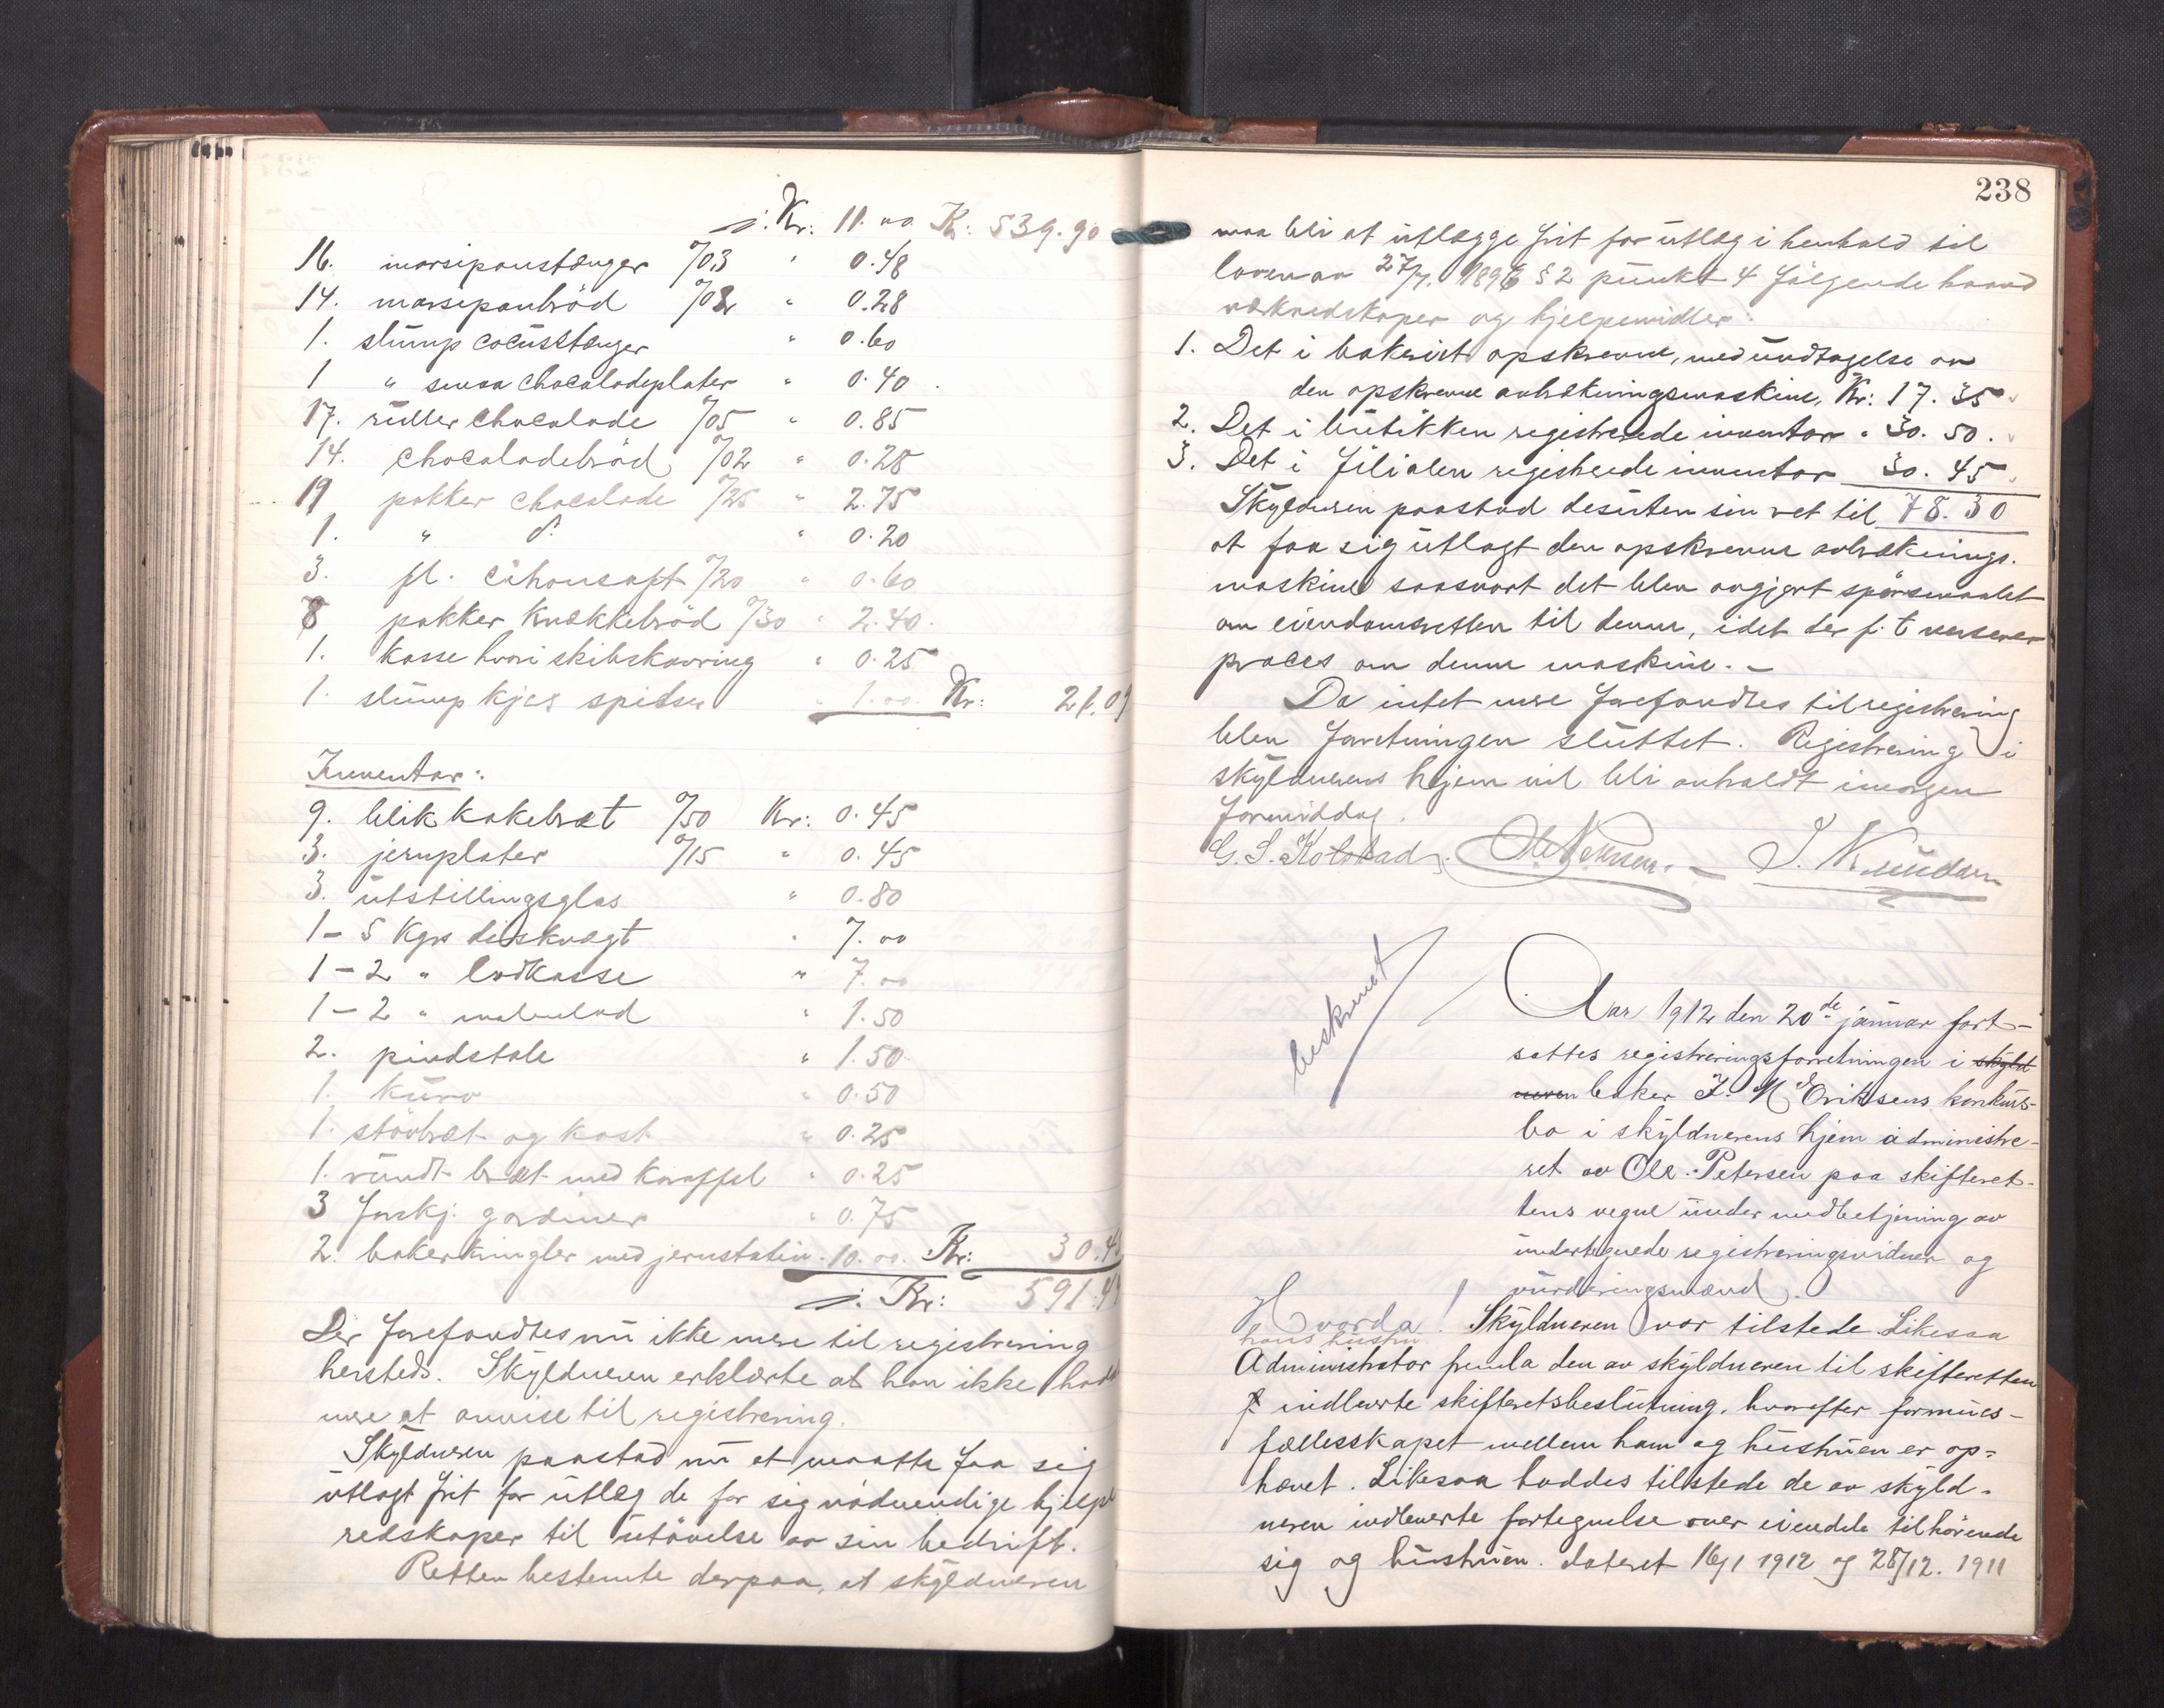 j. Kr: 11.00 Kr: 539.90
16. marsipanstænger %03 " 0.48
14. marsipanbröd %02 " 0.28
1. slump cocusstænger " 0.60
1 " smaa chocoladeplater " 0.40
17. ruller chocolade %05 " 0.85
14. chocoladebröd %02 " 0.28
19 pakker chocolade %25 " 2.75
1. " d. " 0.20
3. fl. citronsaft %20 " 0.60
8 pakker knækkebröd %30 " 2.40.
1. kasse hvori skibskavring " 0.25
1. slump kjex spidser " 1.00. Kr: 21.09
Inventar:
9. blik kakebræt %50 Kr: 0.45
3. jernplater %15 " 0.45
3. utstillingsglas " 0.80
1 - 5 Kgrs diskvægt " 7.00
1 - 2 " lodkasse " 7.00
1 - 2 " " 1.50
2. pindstole " 1.50
1. kurv " 0.50
1. stövbræt og kost " 0.25
1. rundt bræt med karaffel " 0.25
3 forskj. gardiner " 0.75
2. bakerkringler med jernstativ " 10.00. Kr: 30.45
j. Kr: 591.44
Der forefandtes nu ikke mere til registrering
hersteds. Skyldneren erklærte at han ikke hadde
mere at anvise til registrering.
Skyldneren paastod nu at maatte faa sig
utlagt frit for utlæg de for sig nödvendige hjelpe
redskaper til utövelse av sin bedrift.
Retten bestemte derpaa, at skyldneren
238
maa bli at utlægge frit for utlæg i henhold til
loven av 27/7. 1896 § 2 punkt 4 fölgende haand
verksredskaper og hjelpemidler:
1. Det i bakeriet opskrevne, med undtagelse av
den opskrevne avbrækningsmaskine, Kr: 17.35
2. Det i butikken registrerede inventar " 30.50.
3. Det i filialen registrerede inventar 30.45
Skyldneren paastod desuten sin ret til 78.30
at faa sig utlagt den opskrevne avbræknings-
maskine saasnart det blev avgjort spörsmaalet
om eiendomsretten til denne, idet der f. t verserer
proces om denne maskine. -
Da intet mere forefandtes til registrering
blev forretningen sluttet. Registrering i
skyldnerens hjem vil bli avholdt imorgen
formiddag.
G. S. Kolstad. Ole Petersen. - J. Knudsen
beskrevet
Aar 1912 den 20de januar fort-
sattes registreringsforretningen i skyld
neren baker J. M. Eriksens konkurs-
bo i skyldnerens hjem administre-
ret av Ole Petersen paa skifteret-
tens vegne under medbetjening av
undertegnede registreringsvidner og
vurderingsmænd.
Hvorda! Skyldneren var tilstede. Likesaa
hans hustru
Administrator fremla den av skyldneren til skifteretten
indleverte skifteretsbeslutning, hvorefter formues-
fællesskapet mellem ham og hustruen er op-
hævet. Likesaa havdes tilstede de av skyld-
neren indleverte fortegnelse over eiendele tilhörende
sig og hustruen. dateret 16/1 1912 og 28/12. 1911